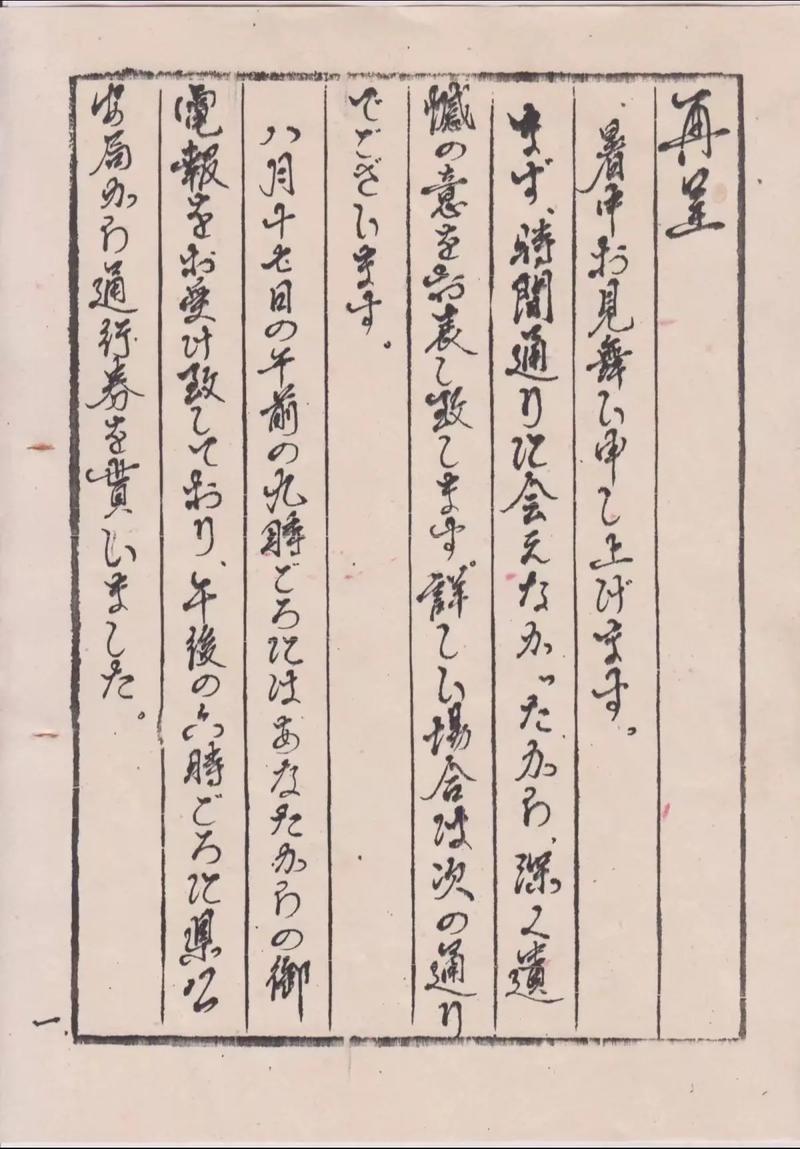 再呈
暑中お見舞い申し上げます。
まず、時間通りに会えなかったから、深く遺
憾の意をお表し致します。詳しい場合は次の通り
でございます。
八月十七日の午前の九時ごろにはあなたからの御
電報をお受け致しており、午後の六時ごろに県公
安局から通行券を貰いました。
一